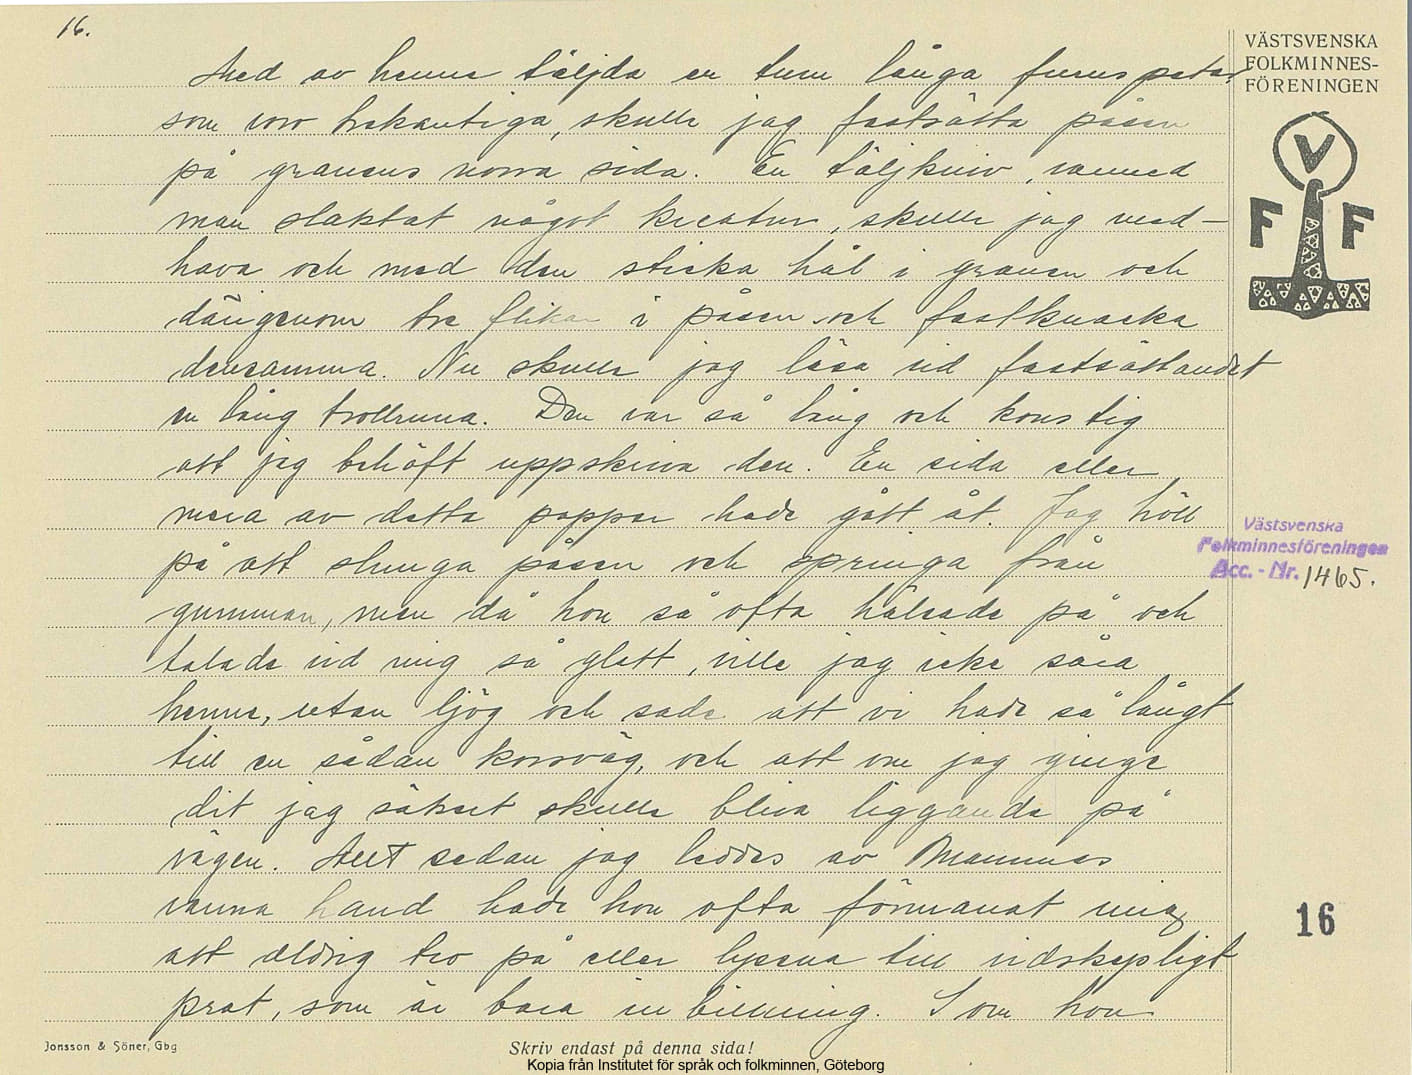 16.
VÄSTSVENSKA
FOLKMINNES-
FÖRENINGEN
V
F F
Med av henne täljda en tum långa furuspetar,
som voro trekantiga, skulle jag fastsätta påsen
på granens norra sida. En täljkniv, varmed
man slaktat något kreatur, skulle jag med-
hava och med den sticka hål i granen och
därigenom tre flikar i påsen och fastknacka
densamma. Nu skulle jag läsa vid fastsättandet
en lång trollruna. Den var så lång och konstig
att jag behöft uppskriva den. En sida eller
mera av detta papper hade gått åt. Jag höll
på att slunga påsen och springa från
gumman, men då hon så ofta hälsade på och
talade vid mig så glatt, ville jag icke såra
henne, utan ljög och sade att vi hade så långt
till en sådan korsväg, och att om jag ginge
dit jag säkert skulle bliva liggande på
vägen. Allt sedan jag leddes av Mammas
varma hand hade hon ofta förmanat mig
att aldrig tro på eller lyssna till vidskepligt
prat, som är bara inbillning. Som hon
Västsvenska
Folkminnesföreningen
Acc. - Nr. 1465.
16
Jonsson & Söner, Gbg
Skriv endast på denna sida!
Kopia från Institutet för språk och folkminnen, Göteborg